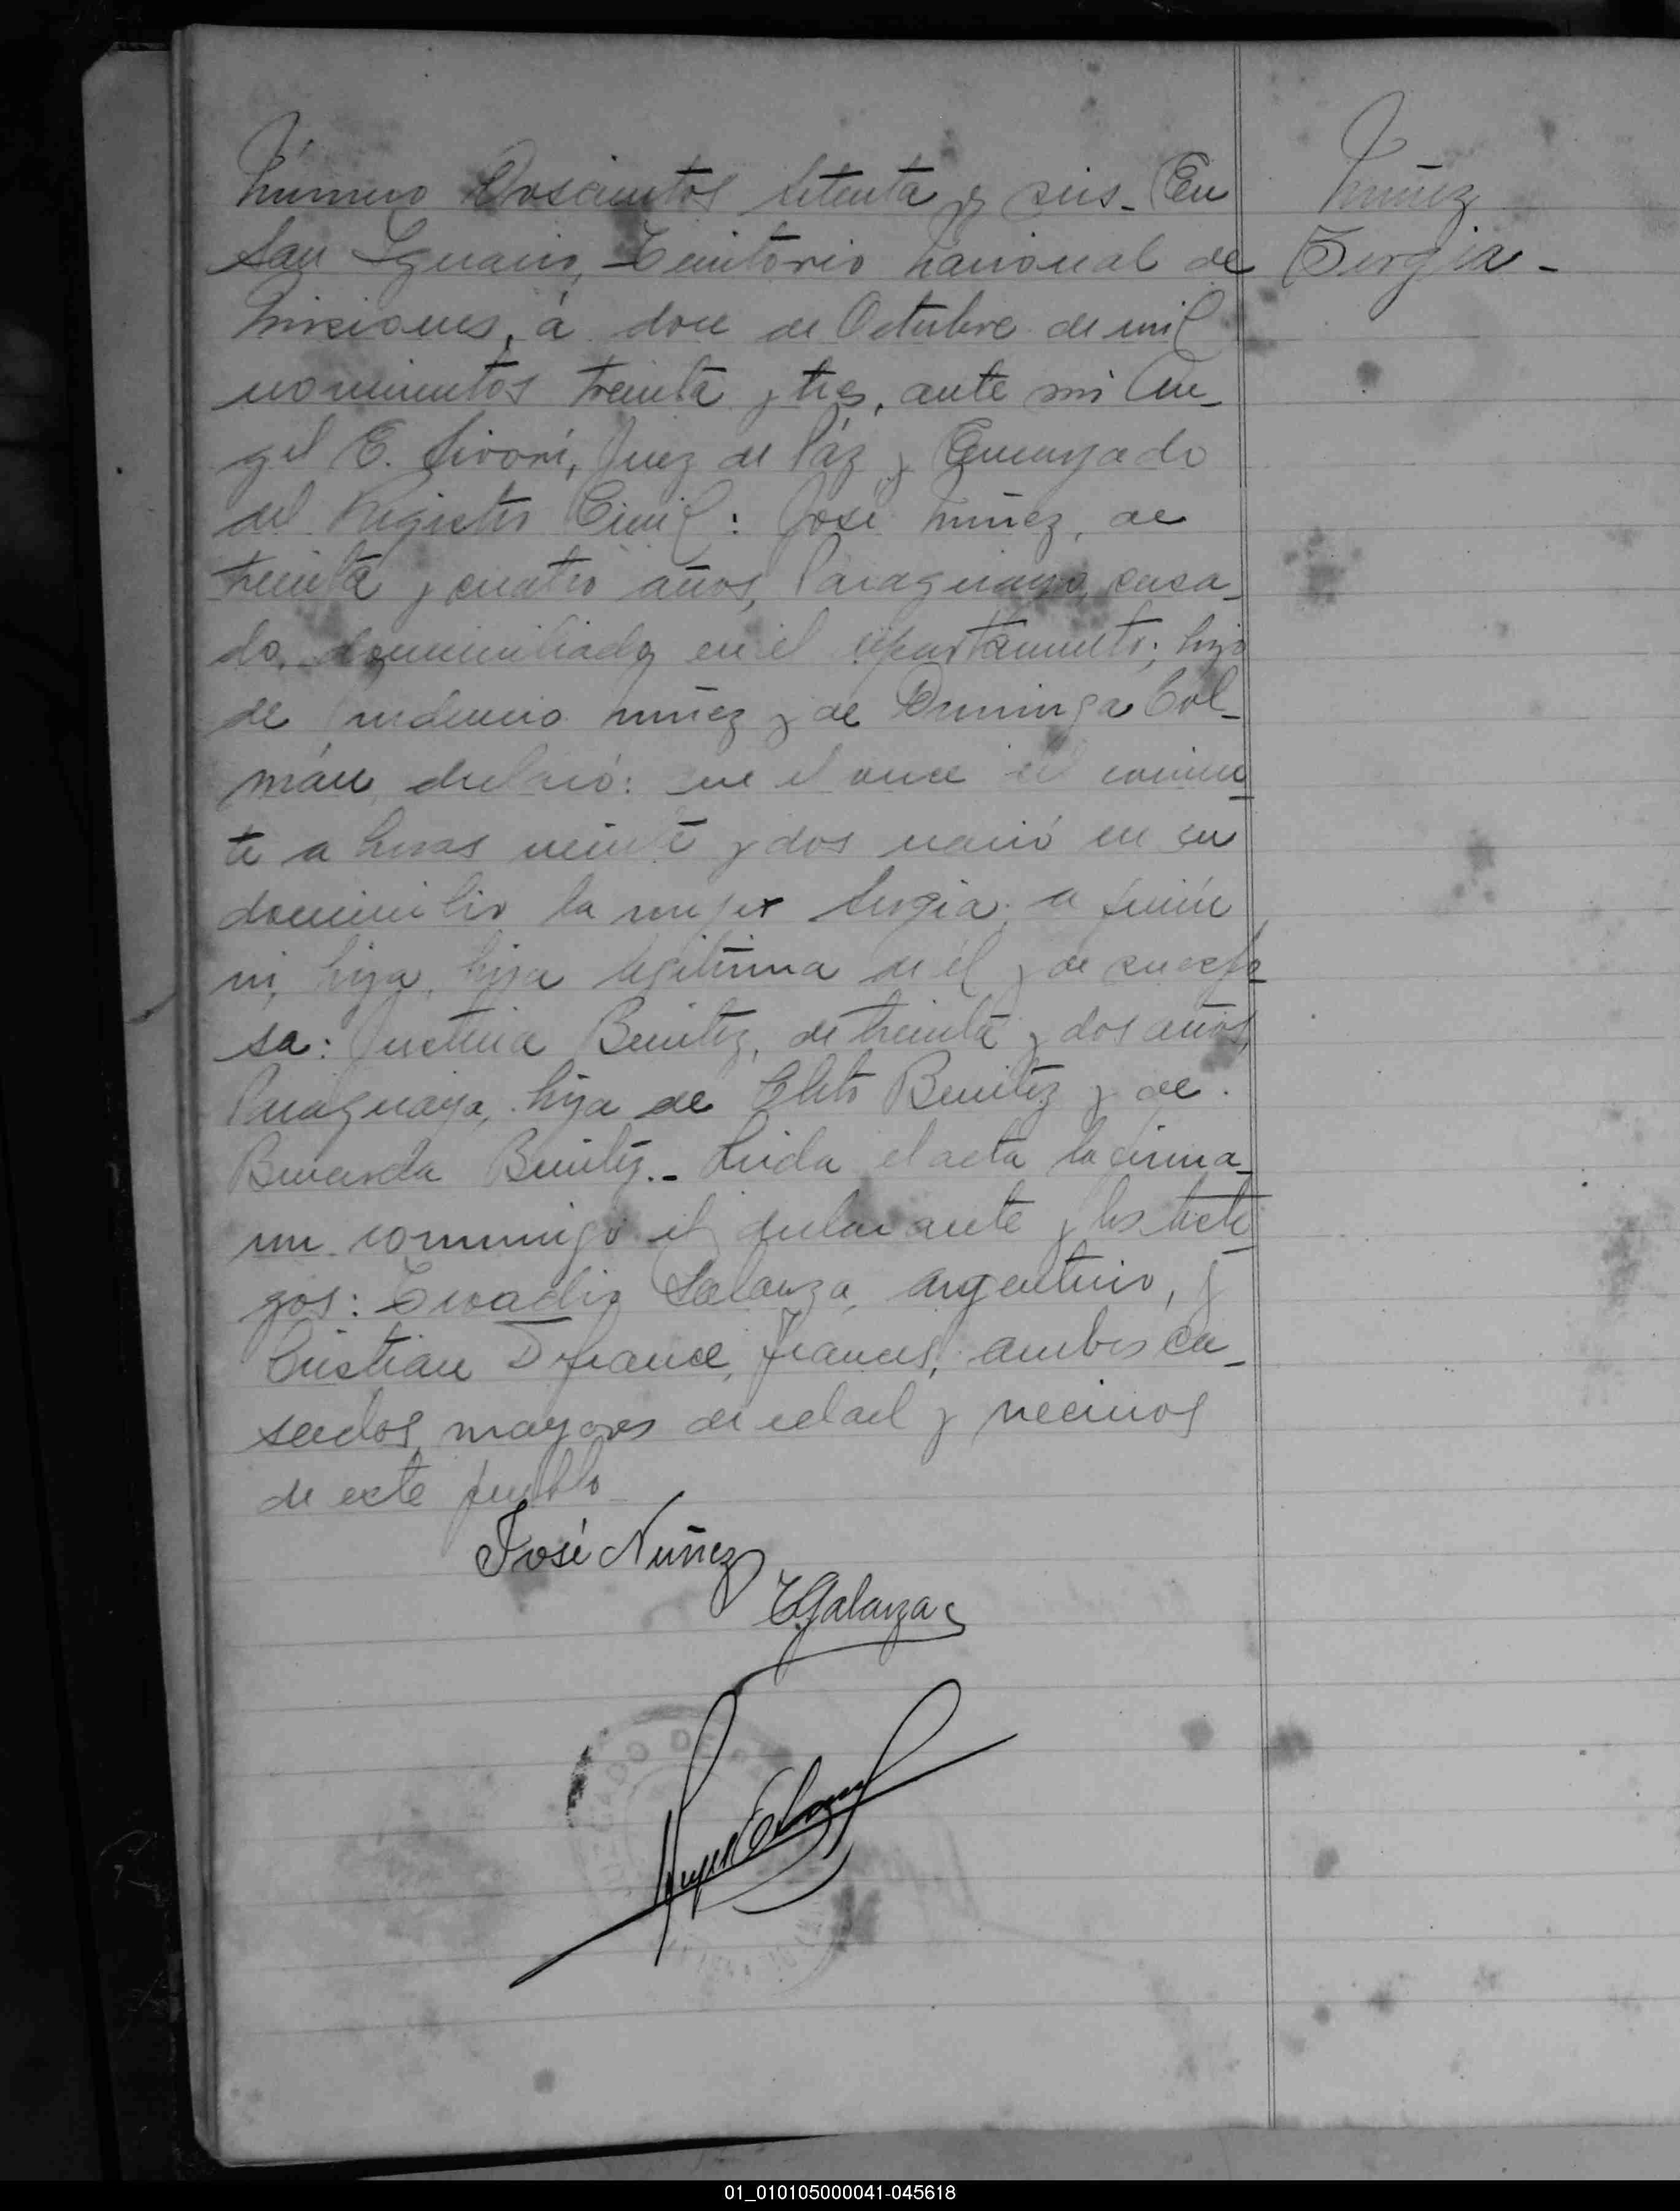 Número Doscientos setenta y seis_ En
San Ignacio, Territorio Nacional de
Misiones, á doce de Octubre de mil
novecientos treinta y tres, ante mi An_
gel E. Sivori, Juez de Páz y Encargado
del Registro Civil: José Núñez, de
treinta y cuatro años, Paraguayo, casa_
do, domiciliado en el departamento; hijo
de Prudencio Núñez y de Dominga Col_
mán, declaró: que el once del corrien_
te a horas veinte y dos nació en su
domicilio la mujer Sergia, a quien
vi, hija, hija legitima de él y de su espo_
sa: Justina Benitez, de treinta y dos años,
Paraguaya, hija de Cleto Benitez y de
Benitez._ Leida el acta la firma_
un conmigo el declarante y los testi_
gos: Galarza, argentino, y
Cristian Defrance, frances, ambos ca_
sados, mayores de edad y vecinos
de este pueblo
Núñez
Sergia_
José Núñez
E Galarza
01_010105000041-045618